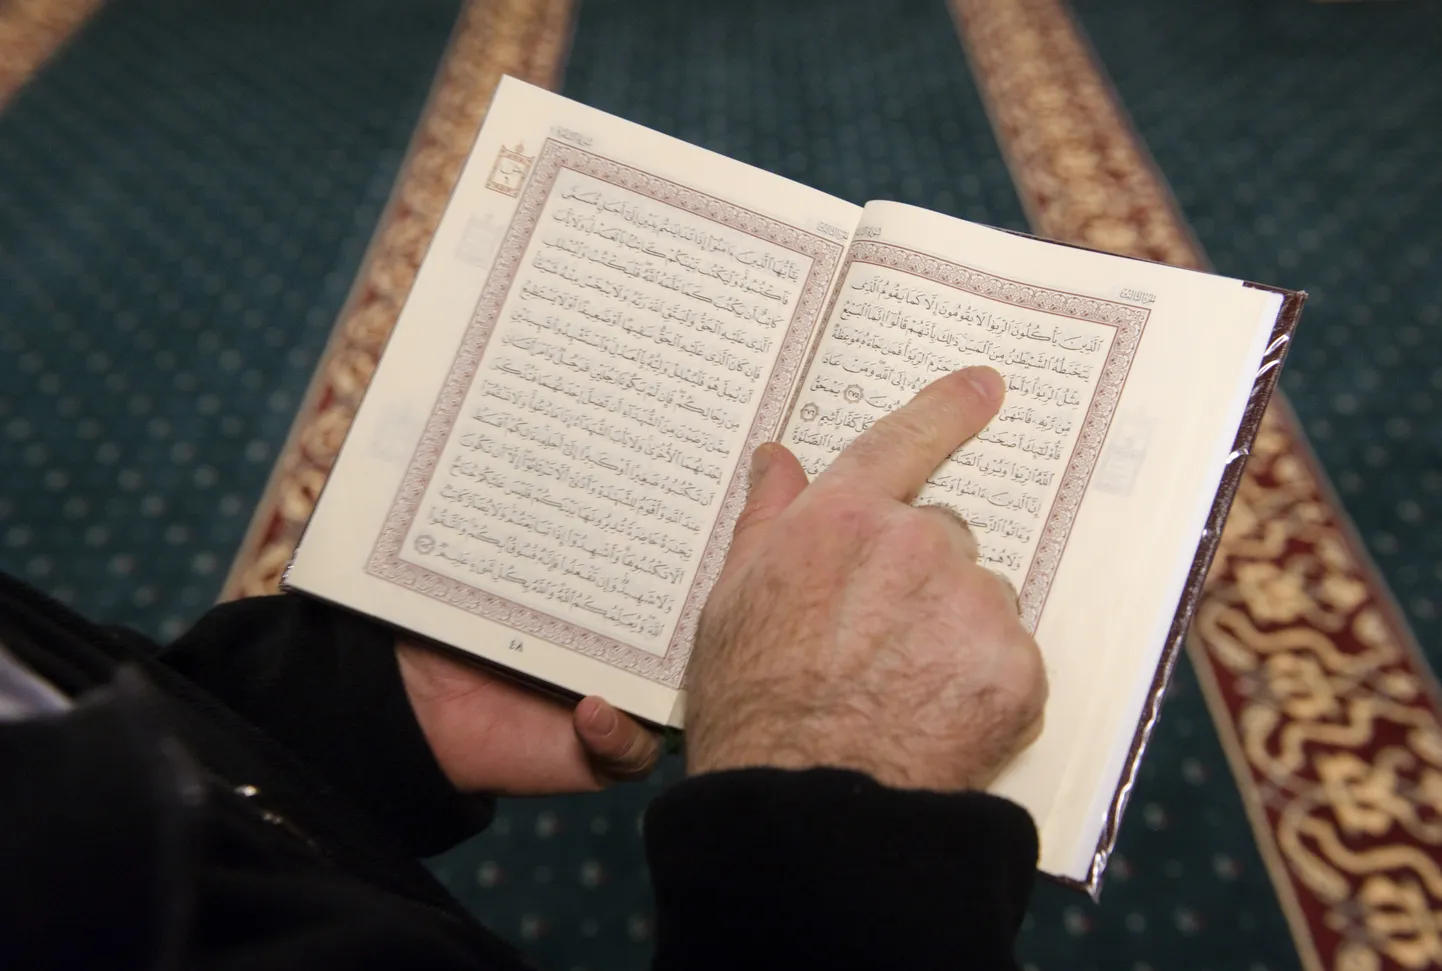 ٱلَّذِينَ يَأْكُلُونَ ٱلرِّبَوٰا۟ لَا يَقُومُونَ إِلَّا كَمَا يَقُومُ ٱلَّذِى
يَتَخَبَّطُهُ ٱلشَّيْطَٰنُ مِنَ ٱلْمَسِّ ذَٰلِكَ بِأَنَّهُمْ قَالُوٓا۟ إِنَّمَا ٱلْبَيْعُ
مِثْلُ ٱلرِّبَوٰا۟ وَأَحَلَّ وَحَرَّمَ ٱلرِّبَوٰا۟ فَمَن جَآءَهُۥ مَوْعِظَةٌ
مِّن رَّبِّهِۦ فَٱنتَهَىٰ إِلَى ٱللَّهِ وَمَنْ عَادَ
فَأُو۟لَٰٓئِكَ أَصْحَٰبُ ٢٧٥ يَمْحَقُ
ٱللَّهُ ٱلرِّبَوٰا۟ وَيُرْبِى كُلَّ كَفَّارٍ أَثِيمٍ ٢٧٦
إِنَّ ٱلَّذِينَ ءَامَنُوا۟ ٱلصَّلَوٰةَ
وَلَا هُمْ
يَٰٓأَيُّهَا ٱلَّذِينَ ءَامَنُوٓا۟ إِذَا تَدَايَنتُم بِدَيْنٍ إِلَىٰٓ أَجَلٍ مُّسَمًّى
فَٱكْتُبُوهُ وَلْيَكْتُب بَّيْنَكُمْ كَاتِبٌۢ بِٱلْعَدْلِ وَلَا يَأْبَ
كَاتِبٌ أَن يَكْتُبَ كَمَا عَلَّمَهُ ٱللَّهُ فَلْيَكْتُبْ وَلْيُمْلِلِ
ٱلَّذِى عَلَيْهِ ٱلْحَقُّ وَلْيَتَّقِ ٱللَّهَ رَبَّهُۥ وَلَا يَبْخَسْ مِنْهُ شَيْـًٔا
فَإِن كَانَ ٱلَّذِى عَلَيْهِ ٱلْحَقُّ سَفِيهًا أَوْ ضَعِيفًا أَوْ لَا يَسْتَطِيعُ
أَن يُمِلَّ هُوَ فَلْيُمْلِلْ وَلِيُّهُۥ بِٱلْعَدْلِ وَٱسْتَشْهِدُوا۟ شَهِيدَيْنِ
مِن رِّجَالِكُمْ فَإِن لَّمْ يَكُونَا رَجُلَيْنِ فَرَجُلٌ وَٱمْرَأَتَانِ
مِمَّن تَرْضَوْنَ مِنَ ٱلشُّهَدَآءِ أَن تَضِلَّ إِحْدَىٰهُمَا فَتُذَكِّرَ
إِحْدَىٰهُمَا ٱلْأُخْرَىٰ وَلَا يَأْبَ ٱلشُّهَدَآءُ إِذَا مَا دُعُوا۟ وَلَا تَسْـَٔمُوٓا۟
أَن تَكْتُبُوهُ صَغِيرًا أَوْ كَبِيرًا إِلَىٰٓ أَجَلِهِۦ ذَٰلِكُمْ أَقْسَطُ
عِندَ ٱللَّهِ وَأَقْوَمُ لِلشَّهَٰدَةِ وَأَدْنَىٰٓ أَلَّا تَرْتَابُوٓا۟ إِلَّآ أَن تَكُونَ
تِجَٰرَةً حَاضِرَةً تُدِيرُونَهَا بَيْنَكُمْ فَلَيْسَ عَلَيْكُمْ جُنَاحٌ
أَلَّا تَكْتُبُوهَا وَأَشْهِدُوٓا۟ إِذَا تَبَايَعْتُمْ وَلَا يُضَآرَّ كَاتِبٌ
وَلَا شَهِيدٌ وَإِن تَفْعَلُوا۟ فَإِنَّهُۥ فُسُوقٌۢ بِكُمْ وَٱتَّقُوا۟
ٱللَّهَ وَيُعَلِّمُكُمُ ٱللَّهُ وَٱللَّهُ بِكُلِّ شَىْءٍ عَلِيمٌ ٢٨٢
٤٨